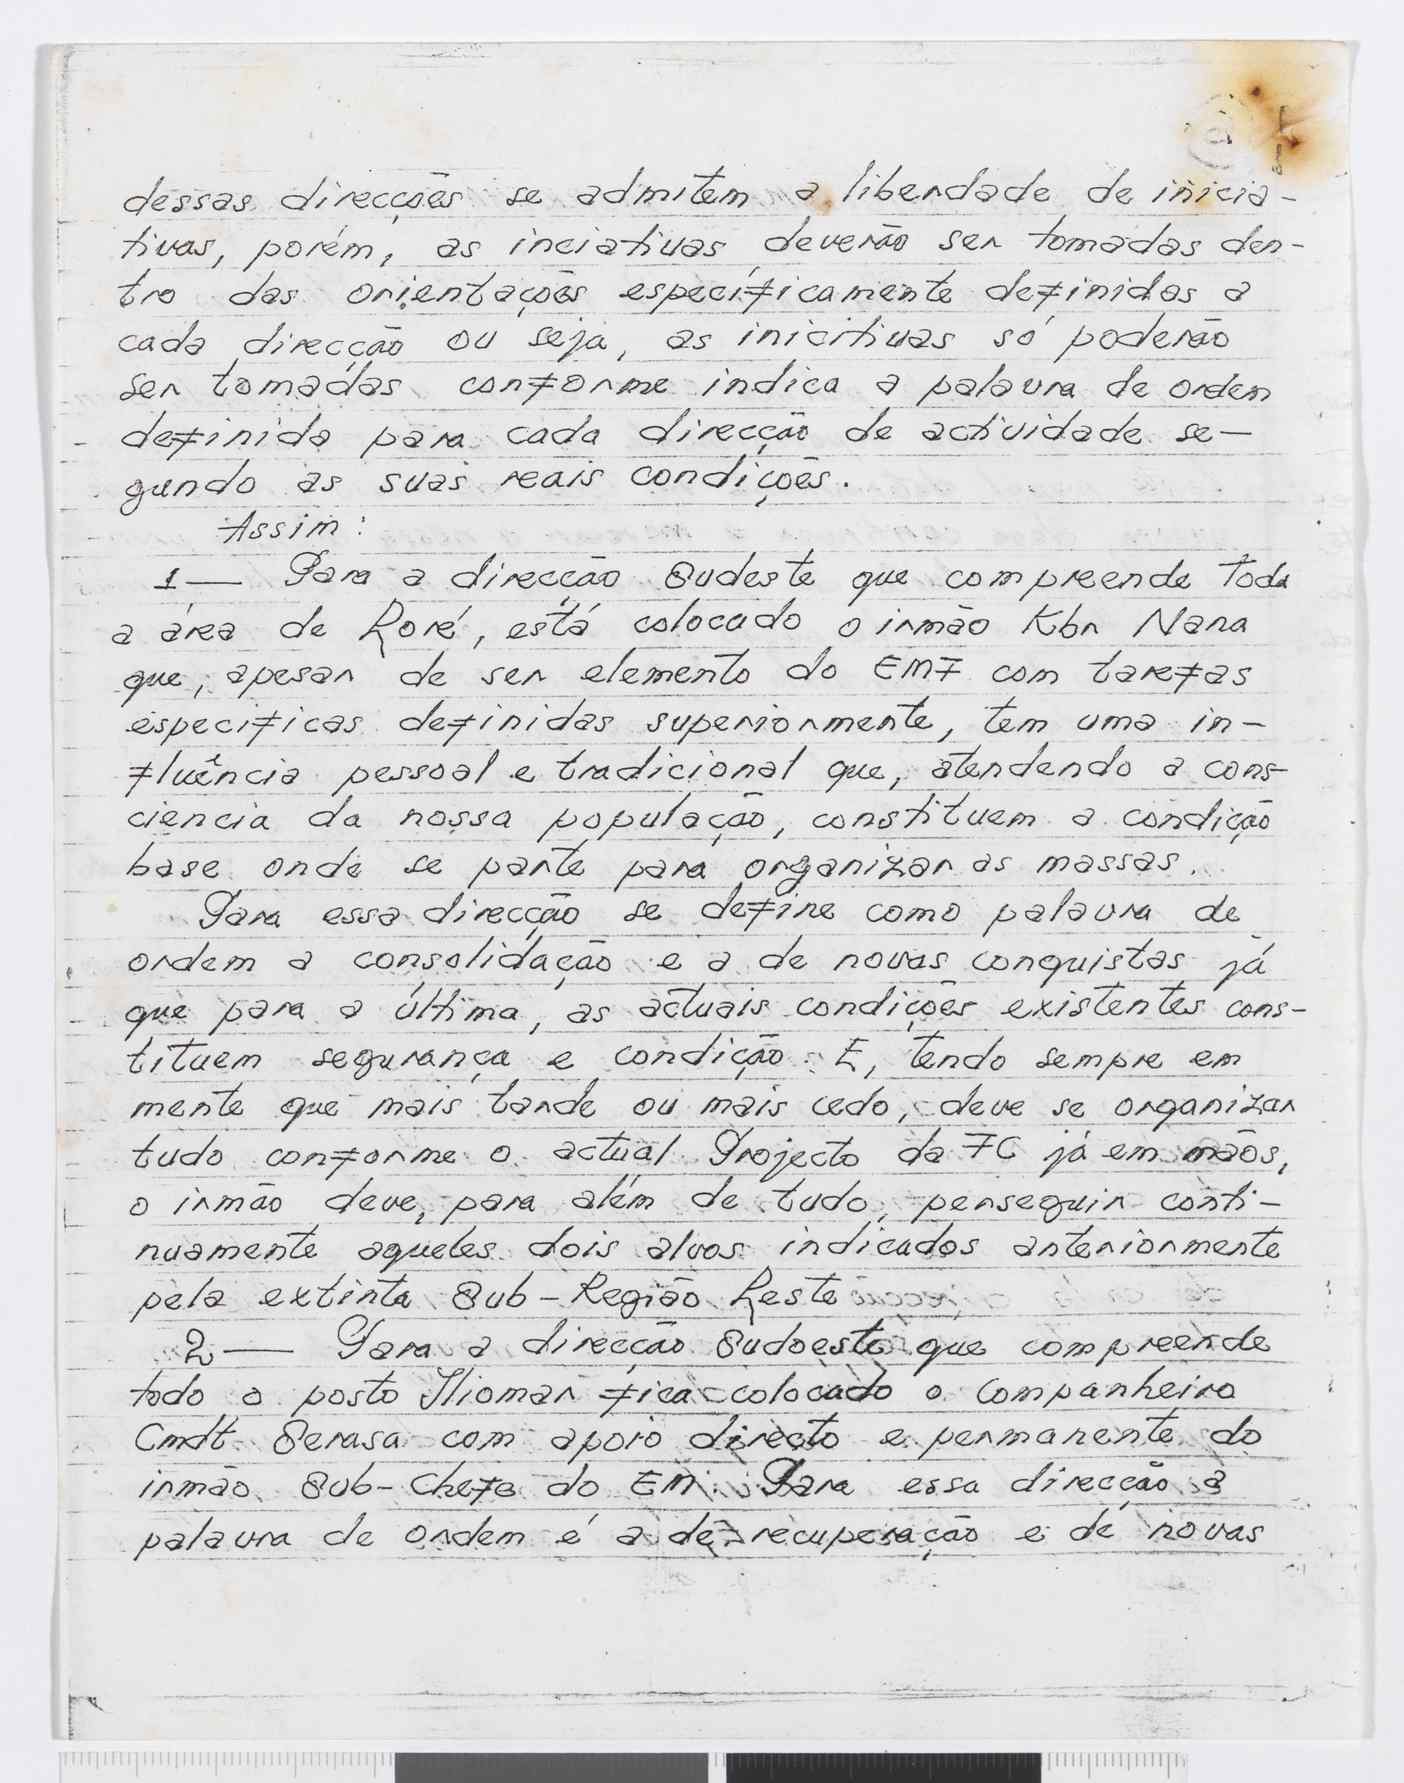 dessas direcções se admitem a liberdade de inicia-
tivas, porém, as inciativas deverão ser tomadas den-
tro das orientações especificamente definidas a
cada direcção ou seja, as inicitivas só poderão
ser tomadas conforme indica a palavra de ordem
definida para cada direcção de actividade se-
gundo as suas reais condições.
Assim:
1— Para a direcção Sudeste que compreende toda
a área de Loré, está colocado o irmão Kbr Nana
que, apesar de ser elemento do EMF com tarefas
especificas definidas superiormente, tem uma in-
fluência pessoal e tradicional que, atendendo a cons-
ciencia da nossa população, constituem a condição
base onde se parte para organizar as massas.
Para essa direcção se define como palavra de
ordem a consolidação e a de novas conquistas já
que para a última, as actuais condições existentes cons-
tituem segurança e condição. E, tendo sempre em
mente que mais tarde ou mais cedo, deve se organizar
tudo conforme o actual Projecto da FC já em mãos,
o irmão deve, para além de tudo, perseguir conti-
nuamente aqueles dois alvos indicados anteriormente
pela extinta Sub-Região Leste
2— Para a direcção Sudoeste que compreende
todo o posto Iliomar fica colocado o Companheiro
Cmdt Serasa com apoio directo e permanente do
irmão Sub-Chefe do EM. Para essa direcção a
palavra de ordem é a de recuperação e de novas